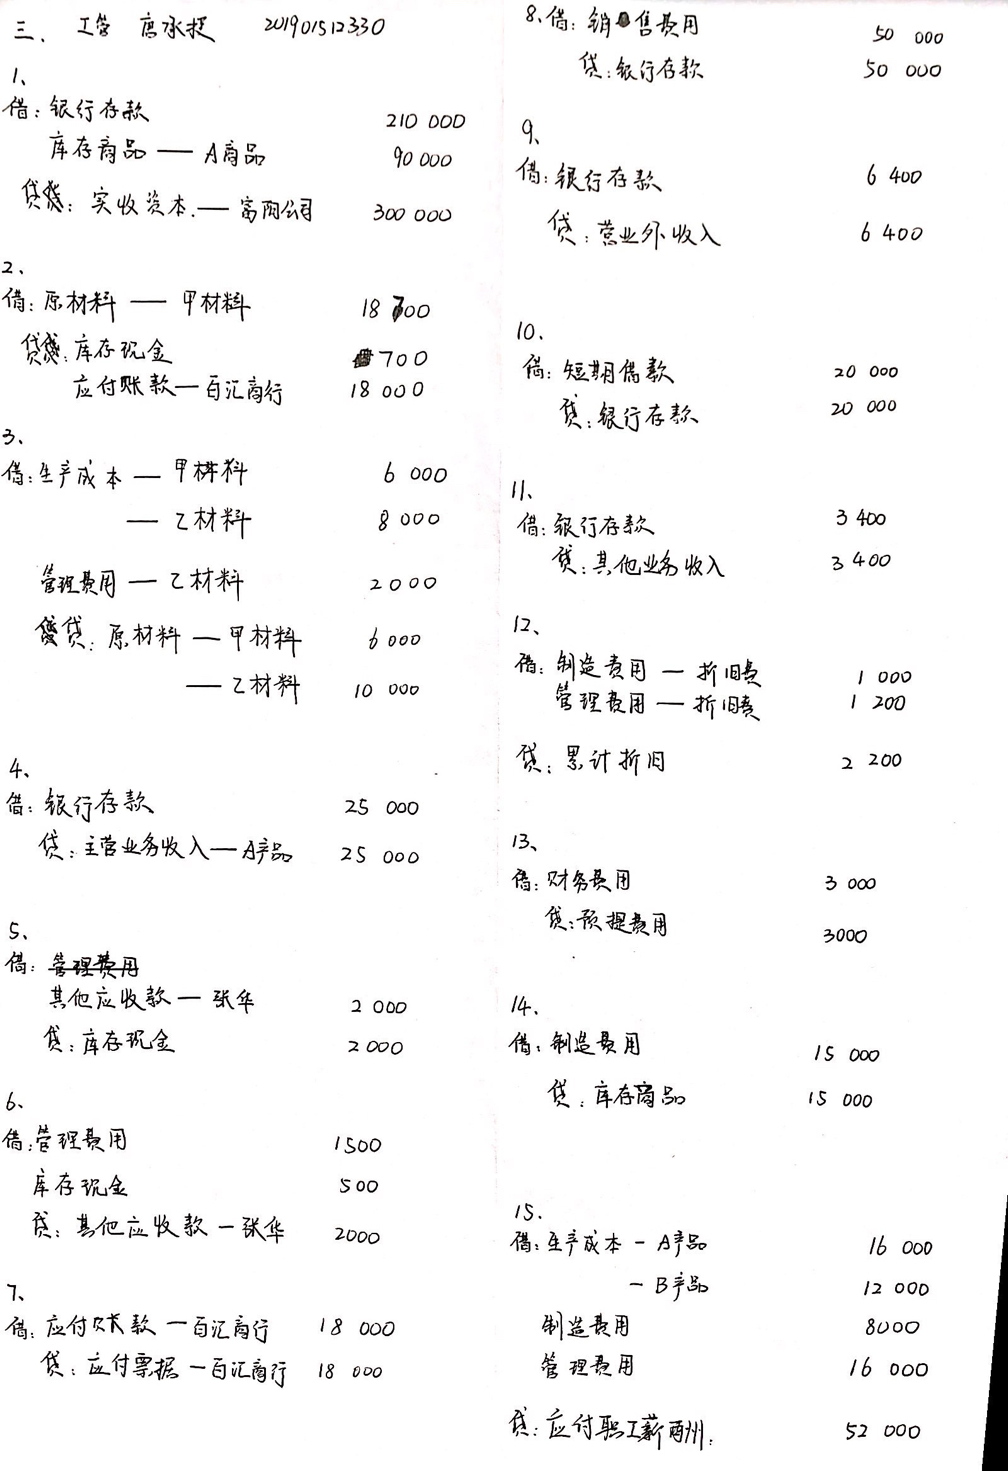 三、 工管 唐承挺 20190151233 0
1、
借：银行存款 210 000
库存商品 — A商品 90 000
贷：实收资本 — 富阳公司 300 000
2、
借：原材料 — 甲材料 18 700
贷：库存现金 700
应付账款 — 百汇商行 18 000
3、
借：生产成本 — 甲材料 6 000
— 乙材料 8 000
管理费用 — 乙材料 2000
贷：原材料 — 甲材料 6 000
— 乙材料 10 000
4、
借：银行存款 25 000
贷：主营业务收入 — A产品 25 000
5、
借：管理费用
其他应收款 — 张华 2 000
贷：库存现金 2000
6、
借：管理费用 1500
库存现金 500
贷：其他应收款 — 张华 2000
7、
借：应付账款 — 百汇商行 18 000
贷：应付票据 — 百汇商行 18 000
8、借：销售费用 50 000
贷：银行存款 50 000
9、
借：银行存款 6 400
贷：营业外收入 6 400
10、
借：短期借款 20 000
贷：银行存款 20 000
11、
借：银行存款 3 400
贷：其他业务收入 3 400
12、
借：制造费用 — 折旧费 1 000
管理费用 — 折旧费 1 200
贷：累计折旧 2 200
13、
借：财务费用 3 000
贷：预提费用 3000
14、
借：制造费用 15 000
贷：库存商品 15 000
15、
借：生产成本 — A产品 16 000
— B产品 12 000
制造费用 8000
管理费用 16 000
贷：应付职工薪酬： 52 000